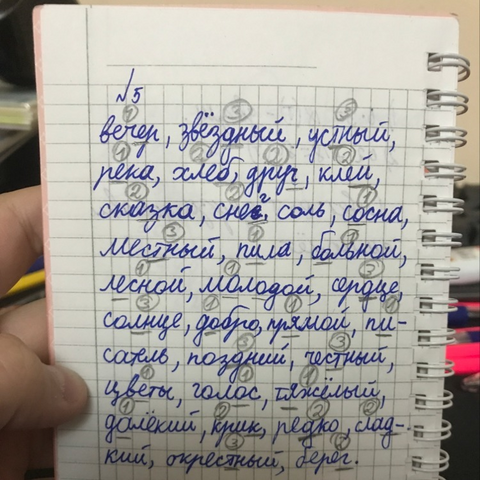 №5
вечер, звёздный, устный,
река, хлеб, друг, клей,
сказка, снег, соль, сосна,
местный, пила, больной,
лесной, молодой, сердце,
солнце, добро, прямой, пи-
сатель, поздний, честный,
цветы, голос, тяжёлый,
далёкий, крик, редко, слад-
кий, окрестный, берег.